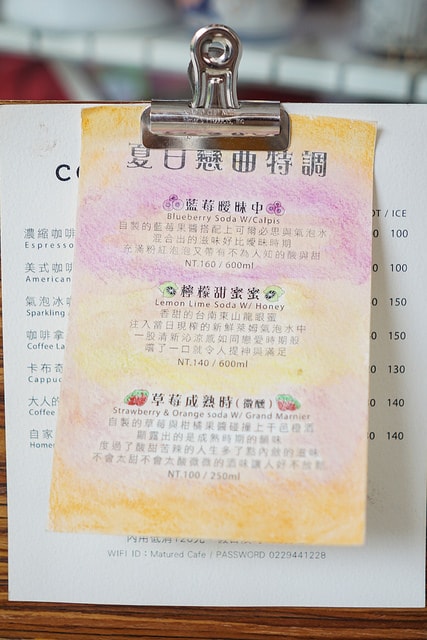 夏日戀曲特調
藍莓曖昧中
Blueberry Soda W/Calpis
自製的藍莓果醬搭配上可爾必思與氣泡水
混合出的滋味好比曖昧時期
充滿粉紅泡泡又帶有不為人知的酸與甜
NT.160 / 600ml
檸檬甜蜜蜜
Lemon Lime Soda W/ Honey
香甜的台南東山龍眼蜜
注入當日現榨的新鮮萊姆氣泡水中
一股清新沁涼感如同戀愛時期般
嚐了一口就令人提神與滿足
NT.140 / 600ml
草莓成熟時(微醺)
Strawberry & Orange soda W/ Grand Marnier
自製的草莓與柑橘果醬碰撞上干邑橙酒
顯露出的是成熟時期的韻味
度過了酸甜苦辣的人生多了點內斂的滋味
不會太甜不會太酸微微的酒味讓人好不放鬆
NT.100 / 250ml
C
OT / ICE
濃縮咖啡
Espresso
100
美式咖
American
100
氣泡冰
Sparkling
150
咖啡拿
Coffee La
150
卡布奇
Cappuc
130
大人的
Coffee
140
自家
Home
140
WIFI ID : Matured Cafe / PASSWORD 0229441228